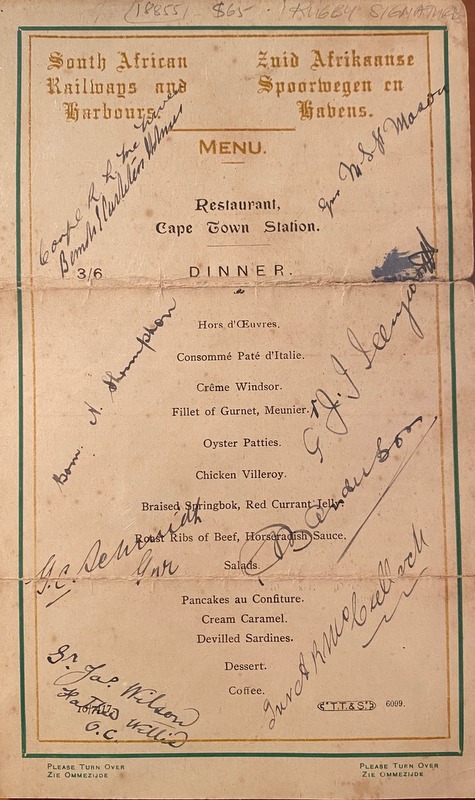 (18855) $65 · RUGBY SIGNATURES
South African
Railways and
Harbours.
Zuid Afrikaanse
Spoorwegen en
Havens.
MENU.
Restaurant,
Cape Town Station.
Gnr W. S. H. Mason
3/6
DINNER.
Hors d'Œuvres.
Consommé Paté d'Italie.
Crême Windsor.
Fillet of Gurnet, Meunier.
Oyster Patties.
Chicken Villeroy.
Braised Springbok, Red Currant Jelly.
Roast Ribs of Beef, Horseradish Sauce.
Salads.
Pancakes au Confiture.
Cream Caramel.
Devilled Sardines.
Dessert.
Coffee.
Bom. N. Thompson
G. C. Schmidt
Gnr
Gr. Jas. Wilson
Willis
O.C.
Gnr A R McCulloch
T.T.&S 6099.
PLEASE TURN OVER
ZIE OMMEZIJDE
PLEASE TURN OVER
ZIE OMMEZIJDE